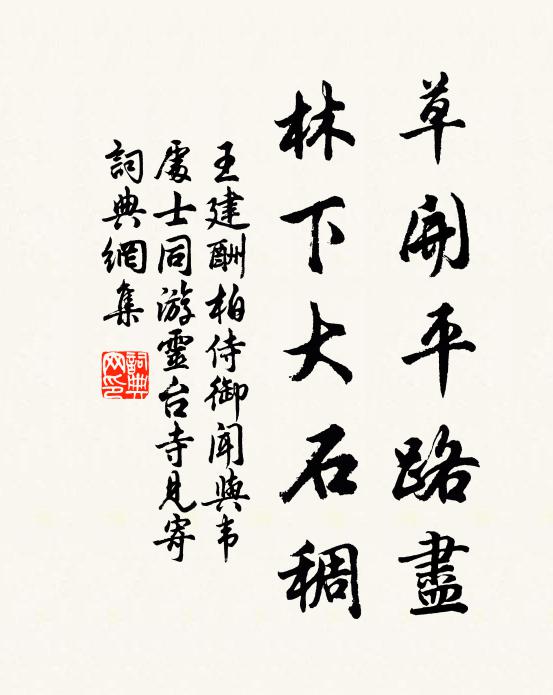 草開平路盡
林下大石稠
王建酬柏侍御聞與韦
處士同游靈台寺見寄
詞典網集
詞典
网印